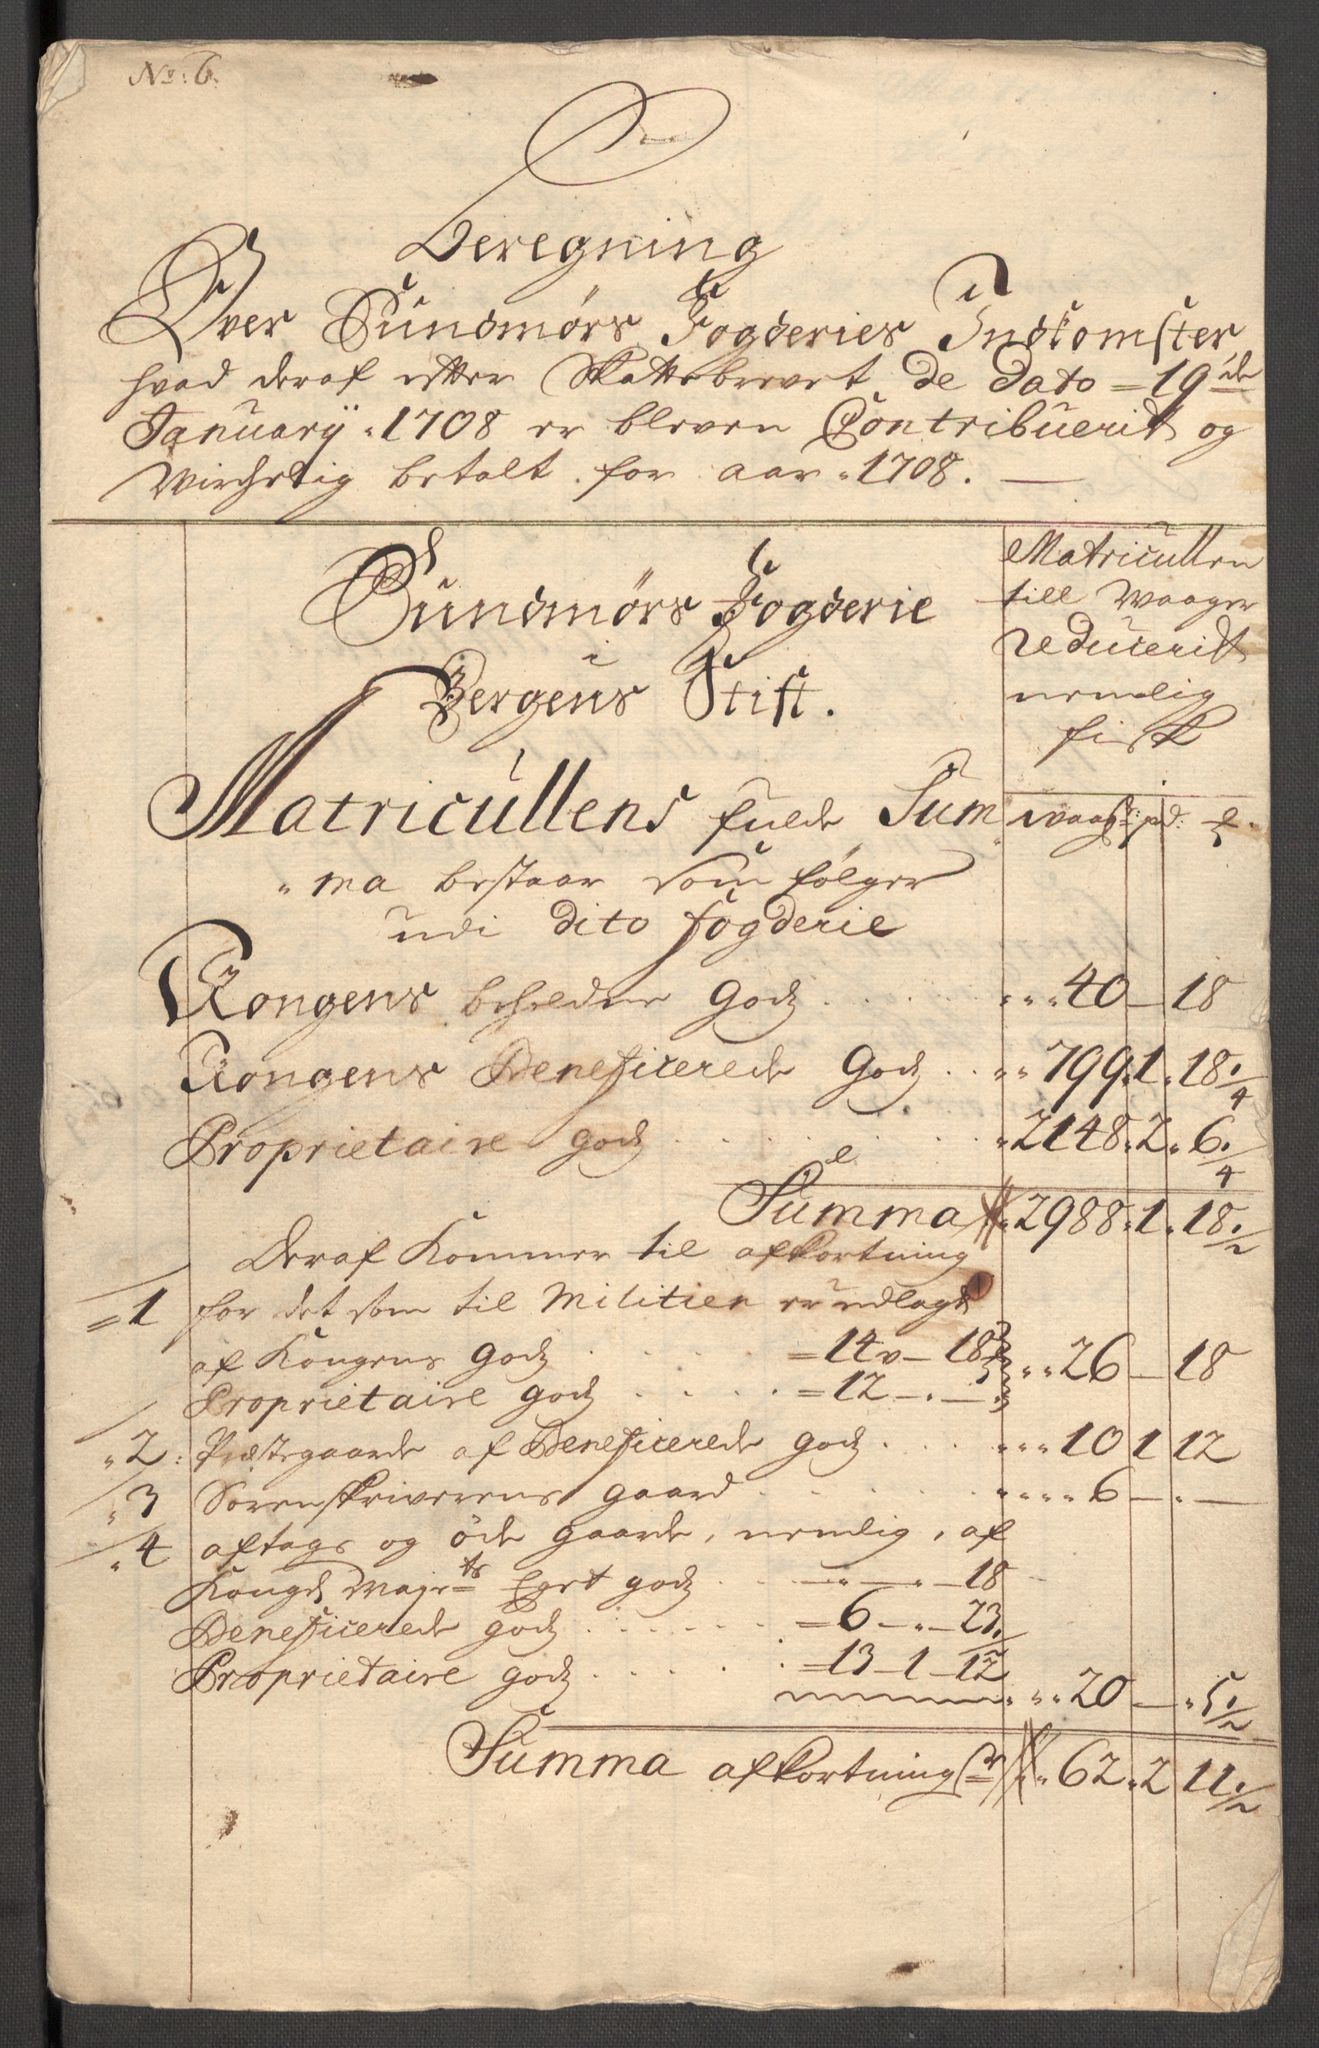 No: 6.
Beregning
Over Sundmørs Fogderies Indkomster
hvad deraf efter Skattebrevet de dato = 19de
January 1708 er bleven Contribuerit og
Wirchelig betalt for aar 1708.
Sundmørs Fogderie
i
Bergens Stift.
Matricullen
till Waager
reducerit
nemlig
fisk
Matricullens fulde Sum
waager pd: ℔.
ma bestaar som følger
udi dito fogderie
Kongens beholden Godz 40 — 18
Kongens Beneficerede Godz 799. 1. 18 1/4
Proprietaire godz 2148. 2. 6 1/4
Summa 2988. 1. 18 1/2
Deraf Kommer til afkortning
1 for det som til Militien er udlagt
af Kongens Godz = 14 v — 18 26 — 18
Proprietaire godz = 12 — . —
2: Præstegaarde af Beneficerede godz 10 1 12
3 Sorenskriverens gaard 6 — . —
4 aftags og øde gaarde, nemlig, af
Kongl Majets Eget godz — . — 18
Beneficerede godz = 6 — . — 23 1/2
Proprietaire godz = 13 — 1 — 12
20 — 5 1/2
Summa afkortning 62. 2 11 1/2